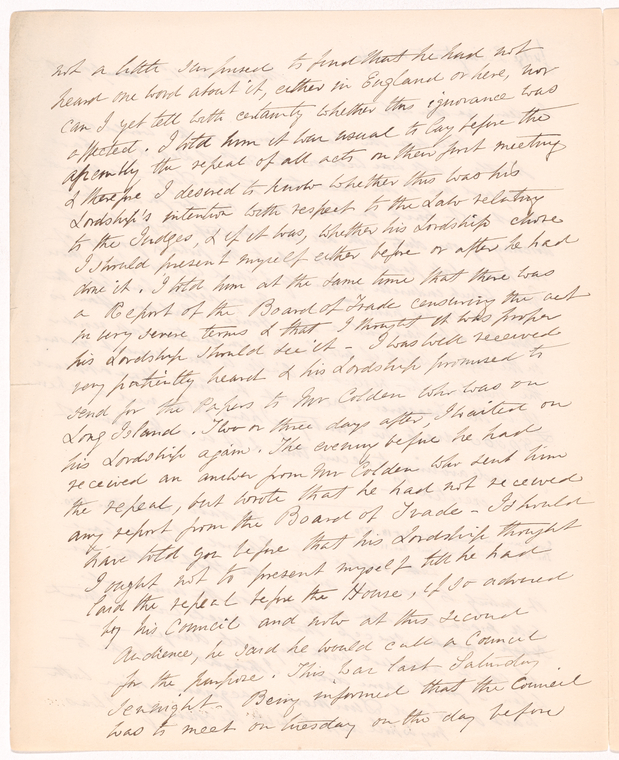 not a little surprised to find that he had not
heard one word about it, either in England or here, nor
can I yet tell with certainty whether this ignorance was
affected. I told him it was usual to lay before the
assembly the repeal of all acts on their first meeting
& therefore I desired to know whether this was his
Lordship's intention with respect to the Law relating
to the Judges, & if it was, whether his Lordship chose
I should present myself either before or after he had
done it. I told him at the same time that there was
a Report of the Board of Trade censuring the act
in very severe terms & that I thought it was proper
his Lordship should see it - I was well received
very patiently heard & his Lordship promised to
send for the Papers to Mr Colden who was on
Long Island. Two or three days after, I waited on
his Lordship again. The evening before he had
received an answer from Mr Colden who sent him
the repeal, but wrote that he had not received
any report from the Board of Trade - I should
have told you before that his Lordship thought
I ought not to present myself till he had
laid the repeal before the House, if so advised
by his Council and now at this second
Audience, he said he would call a Council
for the purpose. This was last Saturday
Sennight - Being informed that the Council
was to meet on tuesday on the day before